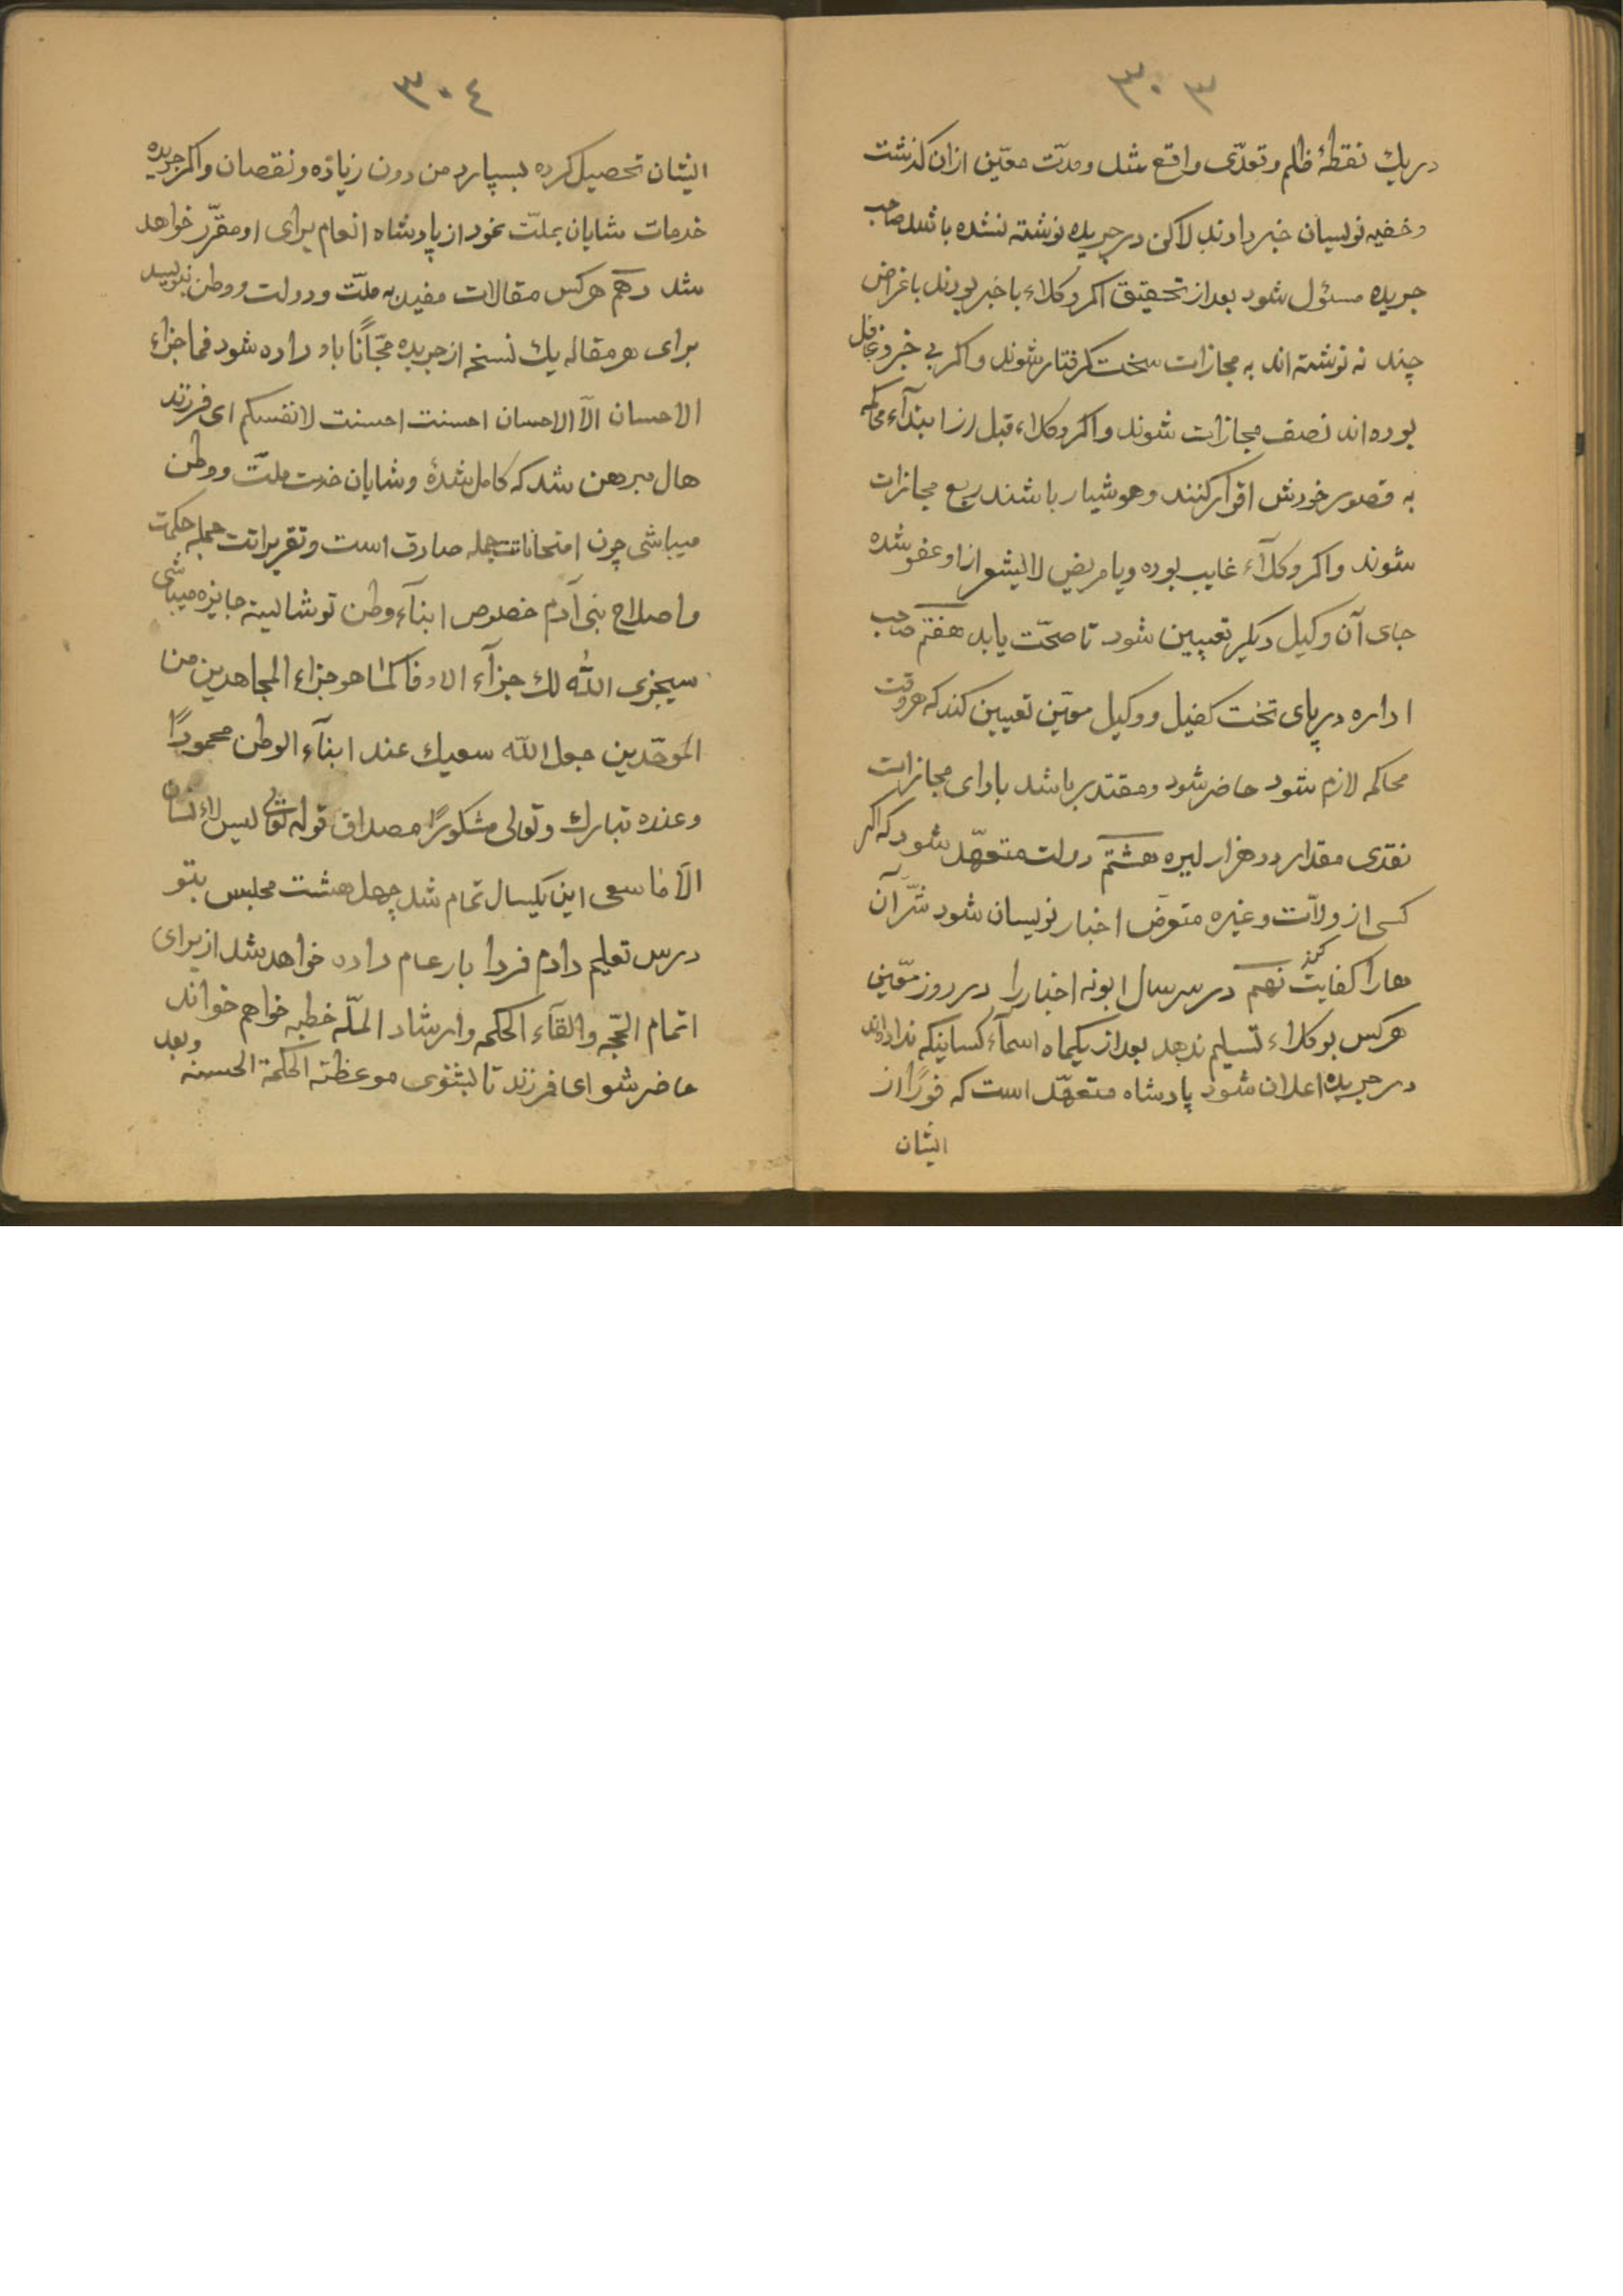 ۳۰۳
دریك نقطهٔ ظلم و تعدّی واقع شد و مدّت معیّن ازان کذشت
و خفیه نویسان خبر دادند لاکن در جریده نوشته نشده باشد صاحب
جریده مسؤل شود بعد از تحقیق اکر وکلاء با خبر بودند باغراض
چند نه نوشته اند به مجازات سخت کرفتار شوند و اکر بی خبر و غافل
بوده اند نصف مجازات شوند و اکر وکلاء قبل از ابتدآء محاکمه
به قصور خودش اقرار کنند و هوشیار باشند ربع مجازات
شوند و اکر وکلآء غایب بوده و یا مریض لایشعر از او عفو شده
جای آن وکیل دیکر تعیین شود تا صحّت یابد هفتم صاحب
اداره در پای تخت کفیل و وکیل معیّن تعیین کند که هر وقت
محاکمه لازم شود حاضر شود و مقتدر باشد بادای مجازات
نقدی مقدار دو هزار لیره هشتم دولت متعهّد شود که اکر
کسی از ولآت و غیره متعرّض اخبار نویسان شود شرّ آن
هارا کفایت کند نهم در سر سال ابونه اخبار را در روز معّین
هرکس بوکلاء تسلیم ندهد بعد از یکماه اسمآء کساینکه نداده‌اند
در جریده اعلان شود پادشاه متعهّد است که فورًا از
ایشان
۳۰٤
ایشان تحصیل کرده بسپارد من دون زیاده و نقصان و اکر جریده
خدمات شایان بملّت نمود از پادشاه انعام برای او مقرّر خواهد
شد دهم هرکس مقالات مفید به ملّت و دولت و وطن بنویسد
برای هر مقاله یك نسخه از جریده مجّانًا باو داده شود فما جزاء
الاحسان الّا الاحسان احسنت احسنت لانفسکم ای فرزند
حال مبرهن شد که کامل شدهٔ و شایان خدمت ملّت و وطن
میباشی چون امتحاناتت جمله صادق است و تقریراتت جمله حکمت
و اصلاح بنی آدم خصوص ابنآء وطن تو شالیستهٔ جایزه میباشی
سیجزی اللّه لك جزآء الاوفا کما هو جزاء المجاهدین من
الموحّدین جعل اللّه سعیك عند ابنآء الوطن محمودًا
و عنده تبارك و تعالی مشکورًا مصداق قوله تعالی لیس للانسان
الّا ما سعی این یکسال تمام شد چهل هشت مجلس بتو
درس تعلیم دادم فردا بار عام داده خواهد شد از برای
اتمام الحجّه و القآء الحکمه و ارشاد الملّه خطبه خواهم خواند
حاضر شو ای فرزند تا بشنوی موعظته الحکمة الحسنه و بعد